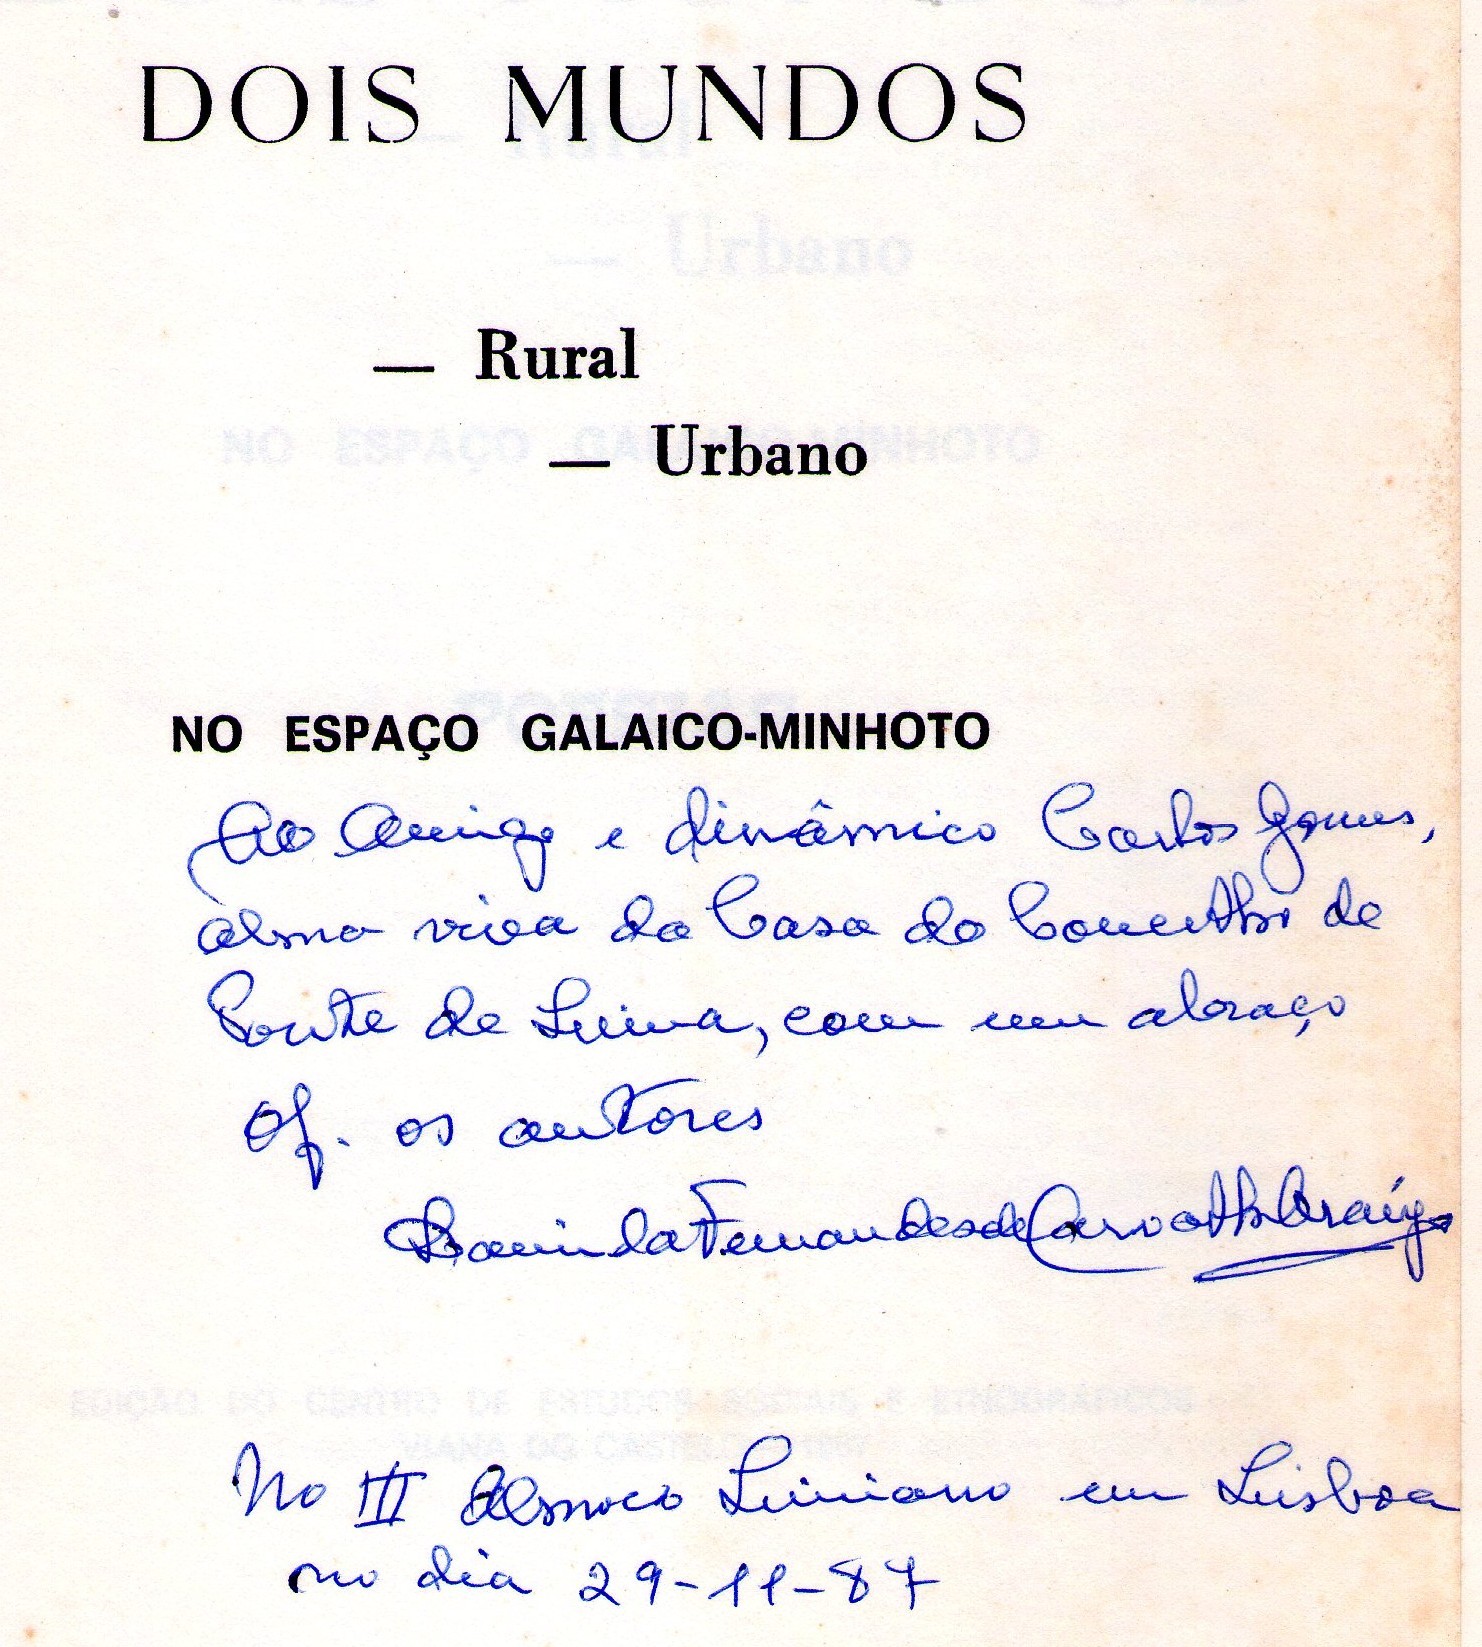 DOIS MUNDOS
— Rural
— Urbano
NO ESPAÇO GALAICO-MINHOTO
Ao Amigo e dinâmico Carlos Gomes,
alma viva da Casa do Concelho de
Ponte de Lima, com um abraço
Of. os autores
Fernandes de Carvalho Araújo
No III Almoço Limiano em Lisboa
no dia 29-11-87
EDIÇÃO DO CENTRO DE ESTUDOS SOCIAIS E ETNOGRÁFICOS
VIANA DO CASTELO 1987